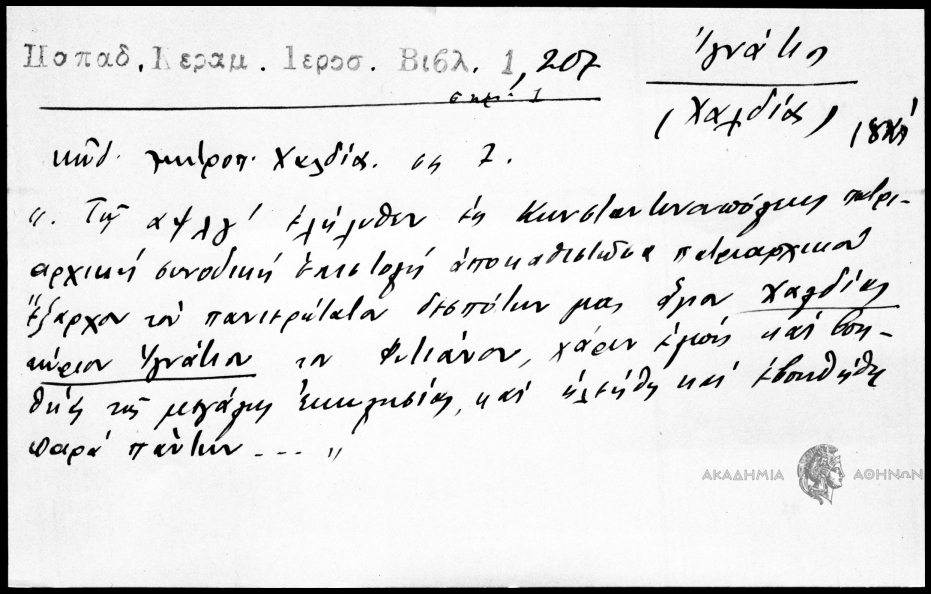 Παπαδ. Κεραμ. Ιεροσ. Βιβλ. 1, 207
σημ. 1
Ἰγνάτιος
(Χαλδίας)
κῶδ. μητροπ. Χαλδίας. σελ 7.
". Τῷ αψλγ' ἐλήλυθεν ἐκ Κωνσταντινουπόλεως πατρι-
αρχικὴ συνοδικὴ ἐπιστολὴ ἀποκαθιστῶσα πατριαρχικὸν
ἔξαρχον τὸν πανιερώτατον δεσπότην μας ἅγιον Χαλδίας
κύριον Ἰγνάτιον τὸν Φυτιάνον, χάριν καὶ βοη-
θείας τῆς μεγάλης ἐκκλησίας, καὶ καὶ ἐβοηθήθη
παρὰ πάντων ... "
ΑΚΑΔΗΜΙΑ ΑΘΗΝΩΝ